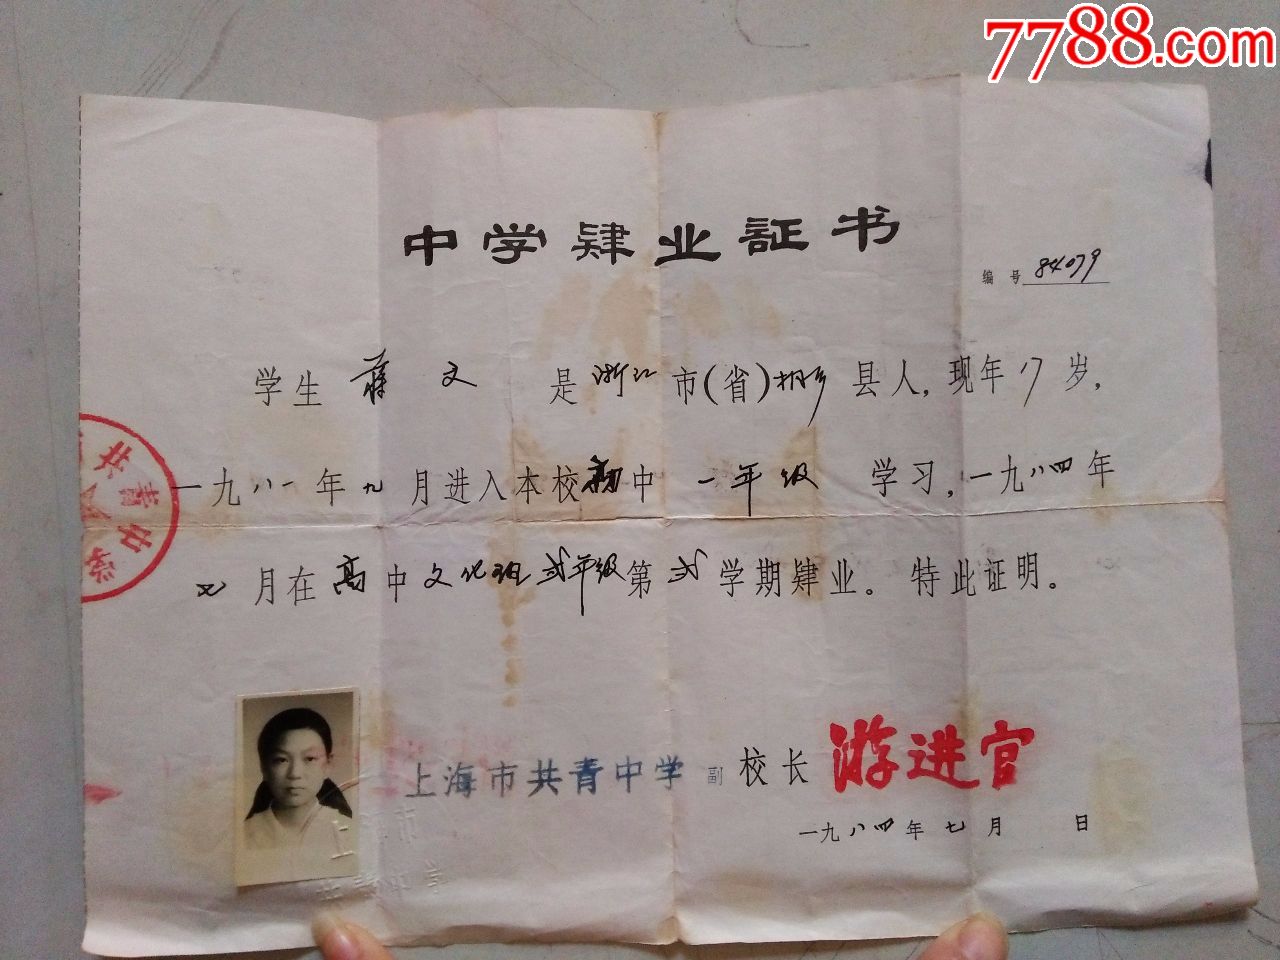 7788.com
中学肄业証书
编号 84079
学生 蒋文 是 浙江 市(省) 桐乡 县人,现年 17 岁,
一九八一年九月进入本校初中 一年级 学习,一九八四年
七月在高中文化班弍年级第弍学期肄业。特此证明。
共青中学
上海市共青中学 副校长 游进官
一九八四年七月 日
上海市
共青中学